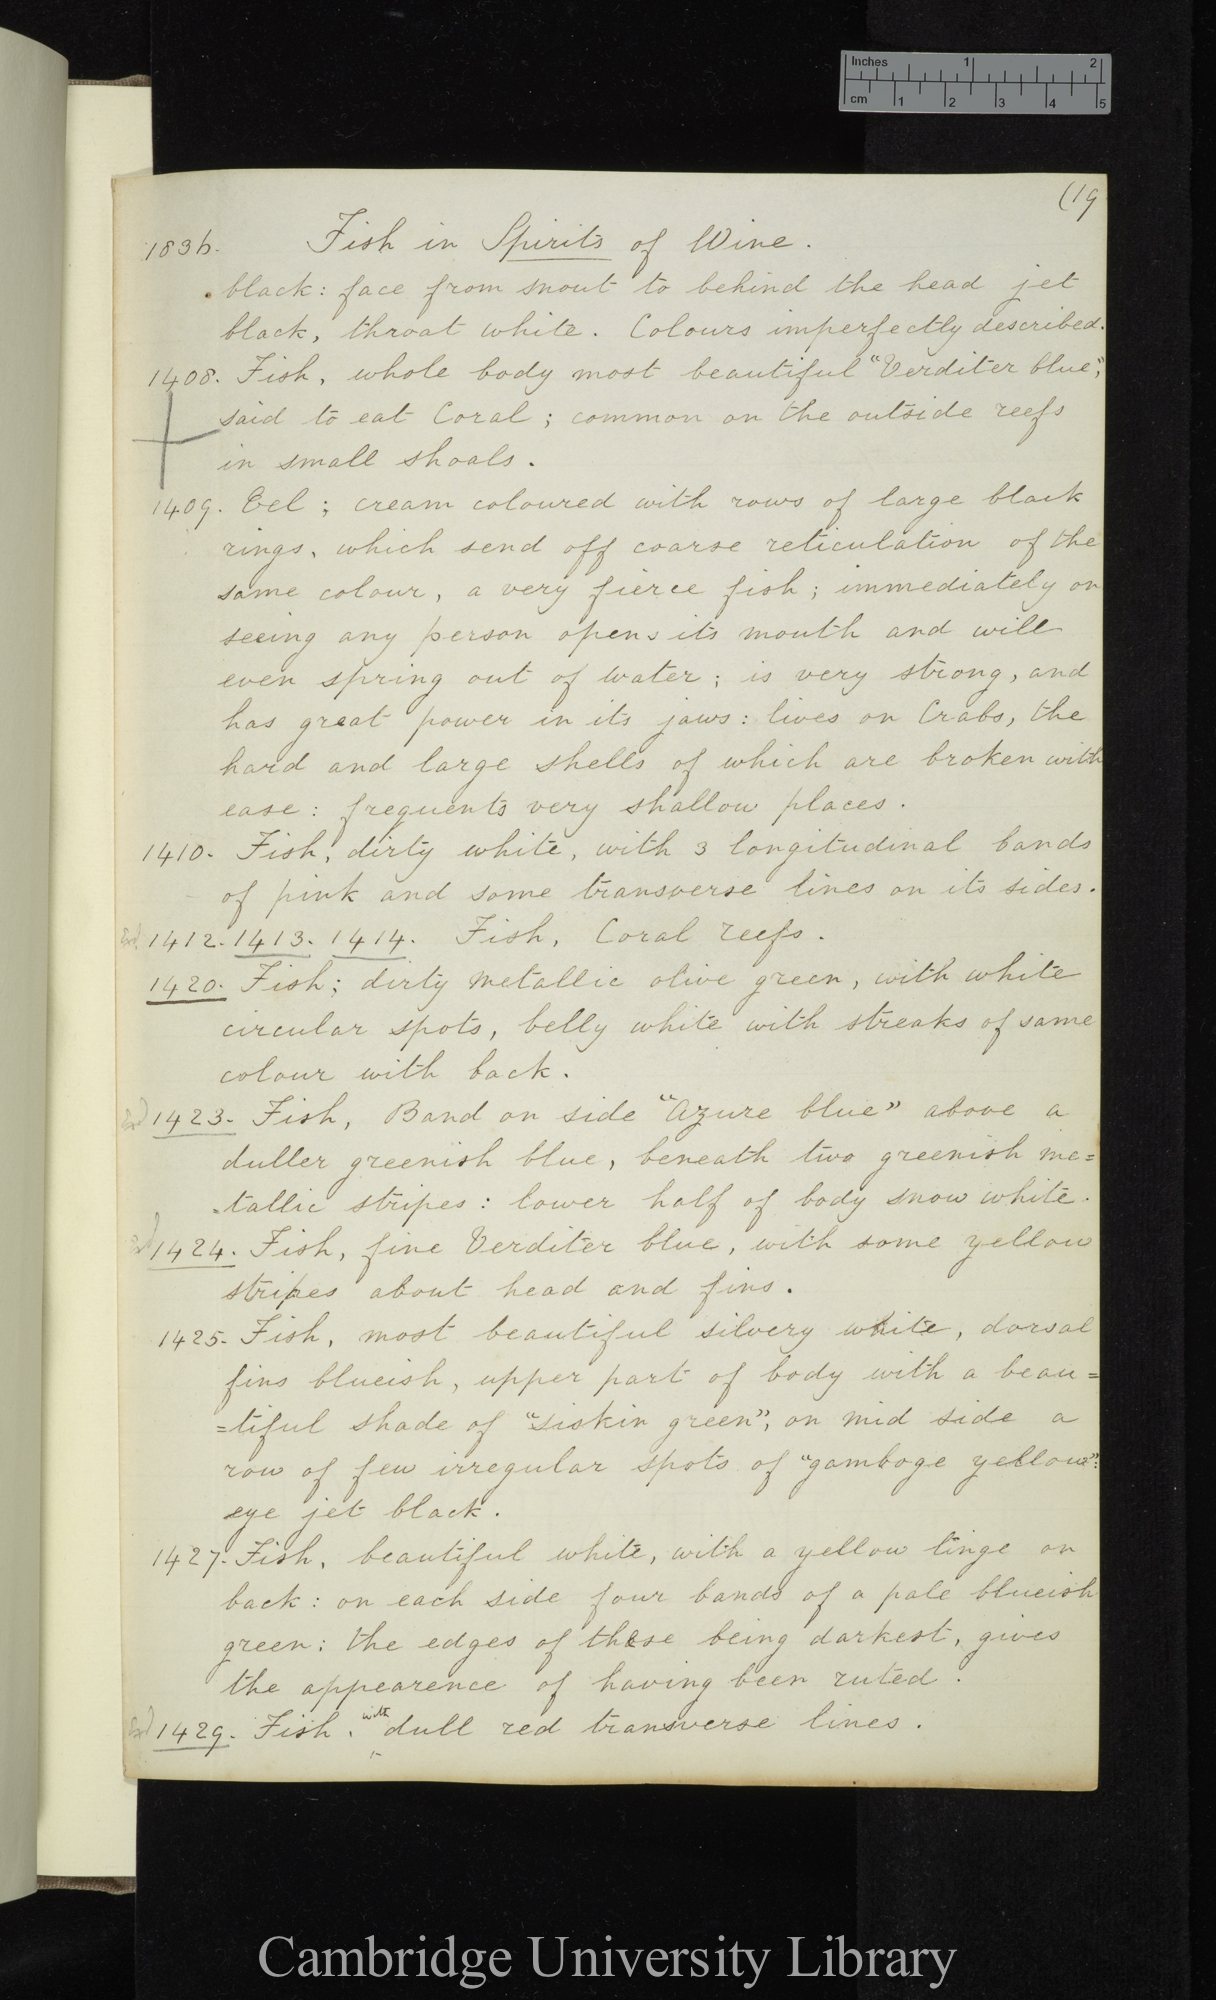 Inches 1 2
cm 1 2 3 4 5
(19
1836. Fish in Spirits of Wine.
black: face from snout to behind the head jet
black, throat white. Colours imperfectly described.
1408. Fish, whole body most beautiful "Verditer blue",
said to eat Coral; common on the outside reefs
in small shoals.
1409. Eel; cream coloured with rows of large black
rings, which send off coarse reticulation of the
same colour, a very fierce fish; immediately on
seeing any person opens its mouth and will
even spring out of water; is very strong, and
has great power in its jaws: lives on Crabs, the
hard and large shells of which are broken with
ease: frequents very shallow places.
1410. Fish, dirty white, with 3 longitudinal bands
of pink and some transverse lines on its sides.
1412. 1413. 1414. Fish, Coral reefs.
1420. Fish; dirty metallic olive green, with white
circular spots, belly white with streaks of same
colour with back.
1423. Fish, Band on side "Azure blue" above a
duller greenish blue, beneath two greenish me=
-tallic stripes: lower half of body snow white.
1424. Fish, fine Verditer blue, with some yellow
stripes about head and fins.
1425. Fish, most beautiful silvery white, dorsal
fins blueish, upper part of body with a beau=
=tiful shade of "siskin green", on mid side a
row of few irregular spots of "gamboge yellow":
eye jet black.
1427. Fish, beautiful white, with a yellow tinge on
back: on each side four bands of a pale blueish
green: the edges of these being darkest, gives
the appearence of having been ruted.
1429. Fish, with dull red transverse lines.
Cambridge University Library